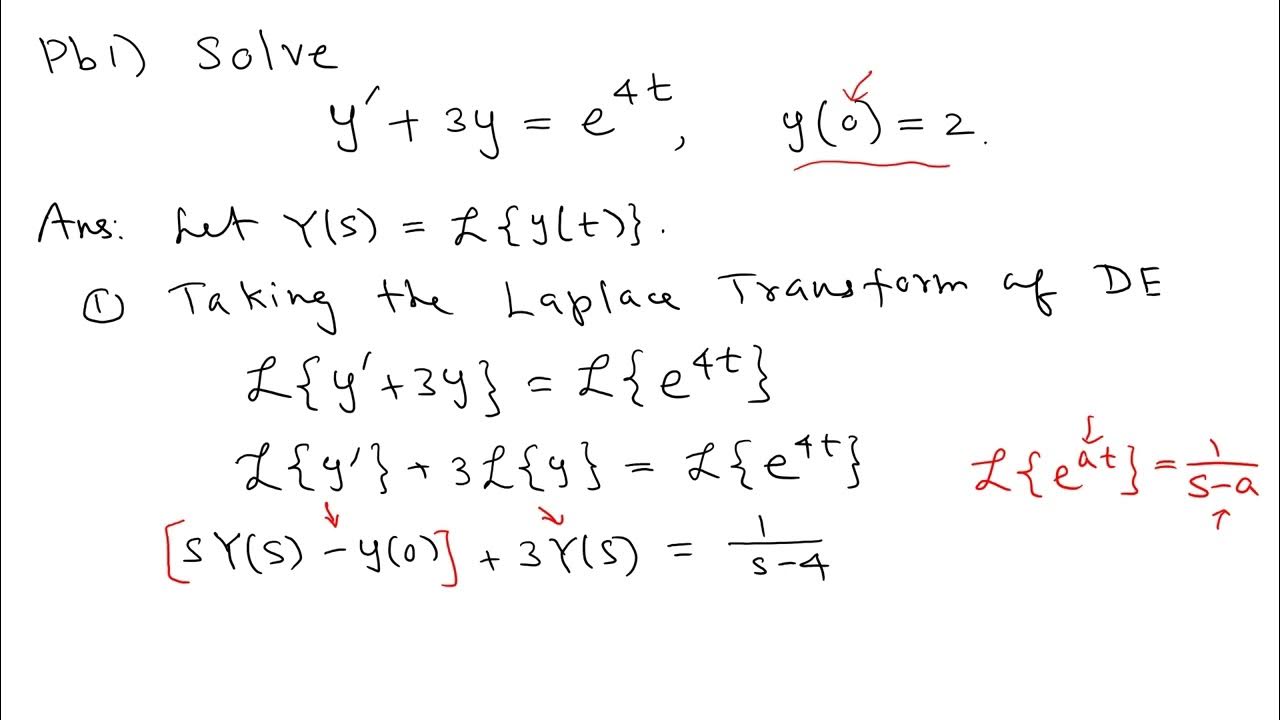 Pb1) Solve
y' + 3y = e^{4t}, y(0) = 2.
Ans: Let Y(s) = ℒ{y(t)}.
① Taking the Laplace Transform of DE
ℒ{y' + 3y} = ℒ{e^{4t}}
ℒ{y'} + 3ℒ{y} = ℒ{e^{4t}}
ℒ{e^{at}} = \frac{1}{s-a}
[sY(s) - y(0)] + 3Y(s) = \frac{1}{s-4}